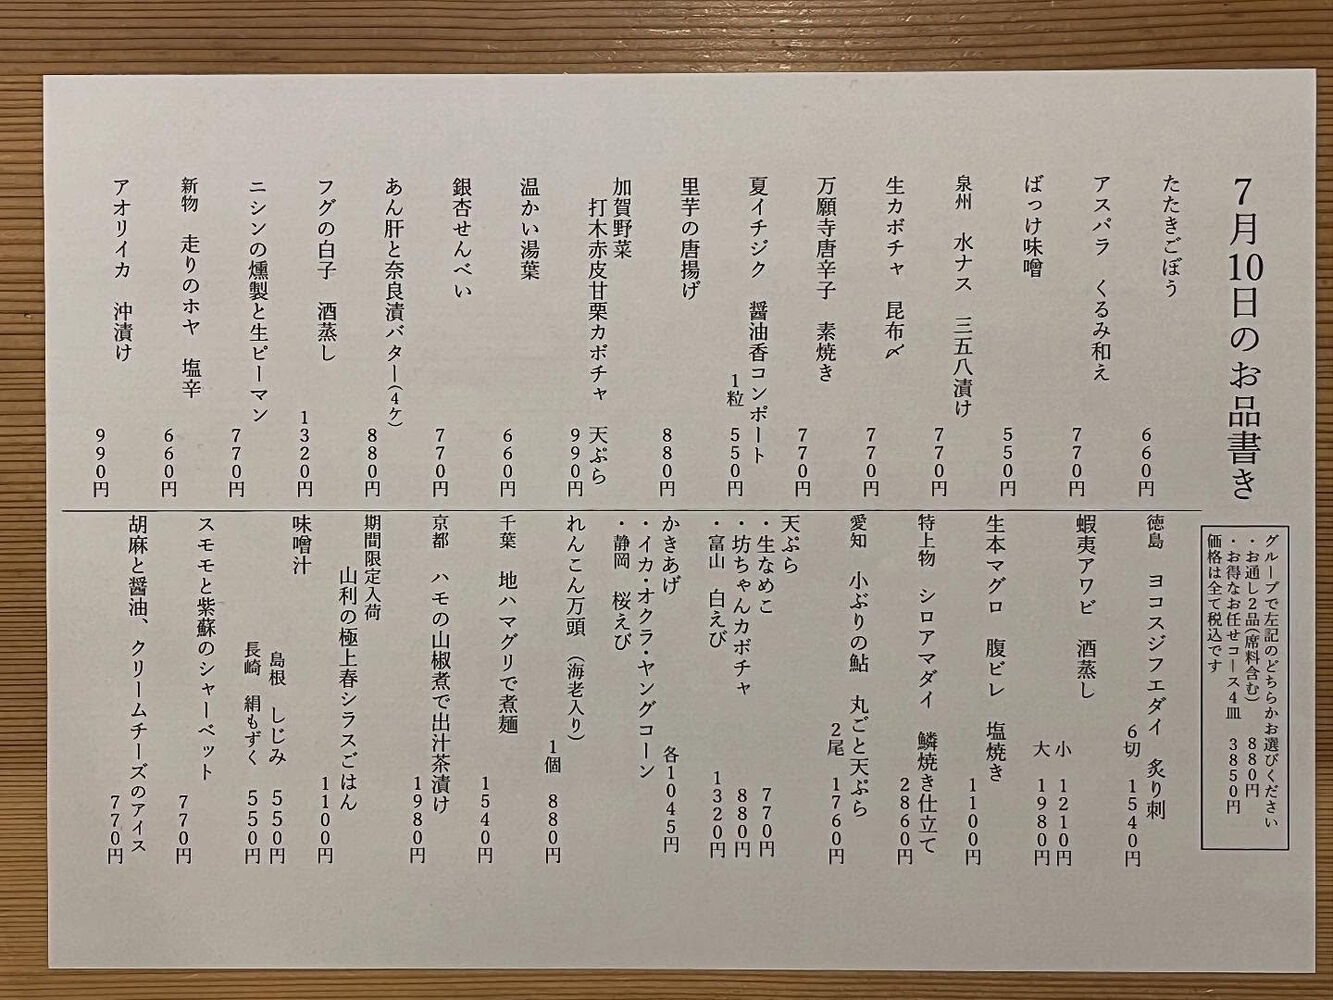 7月10日のお品書き
グループで左記のどちらかお選びください
・お通し2品(席料含む) 880円
・お得なお任せコース4皿 3850円
価格は全て税込です
たたきごぼう 660円
アスパラ くるみ和え 770円
ばっけ味噌 550円
泉州 水ナス 三五八漬け 770円
生カボチャ 昆布〆 770円
万願寺唐辛子 素焼き 770円
夏イチジク 醤油香コンポート
1粒 550円
里芋の唐揚げ 880円
加賀野菜
打木赤皮甘栗カボチャ 天ぷら
990円
温かい湯葉 660円
銀杏せんべい 770円
あん肝と奈良漬バター(4ケ) 880円
フグの白子 酒蒸し 1320円
ニシンの燻製と生ピーマン 770円
新物 走りのホヤ 塩辛 660円
アオリイカ 沖漬け 990円
徳島 ヨコスジフエダイ 炙り刺
6切 1540円
蝦夷アワビ 酒蒸し
小 1210円
大 1980円
生本マグロ 腹ビレ 塩焼き 1100円
特上物 シロアマダイ 鱗焼き仕立て
2860円
愛知 小ぶりの鮎 丸ごと天ぷら
2尾 1760円
天ぷら
・生なめこ 770円
・坊ちゃんカボチャ 880円
・富山 白えび 1320円
かきあげ 各1045円
・イカ・オクラ・ヤングコーン
・静岡 桜えび
れんこん万頭 (海老入り)
1個 880円
千葉 地ハマグリで煮麺 1540円
京都 ハモの山椒煮で出汁茶漬け
1980円
期間限定入荷
山利の極上春シラスごはん
1100円
味噌汁
島根 しじみ 550円
長崎 絹もずく 550円
スモモと紫蘇のシャーベット 770円
胡麻と醤油、クリームチーズのアイス
770円